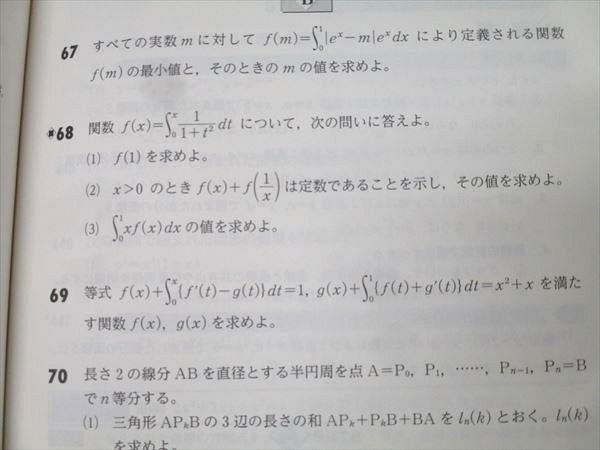 B
67 すべての実数 m に対して f(m)=∫₀¹|eˣ−m|eˣdx により定義される関数
f(m) の最小値と，そのときの m の値を求めよ。
*68 関数 f(x)=∫₀ˣ 1/(1+t²) dt について，次の問いに答えよ。
(1) f(1) を求めよ。
(2) x>0 のとき f(x)+f(1/x) は定数であることを示し，その値を求めよ。
(3) ∫₀¹xf(x)dx の値を求めよ。
69 等式 f(x)+∫₀ˣ{f′(t)−g(t)}dt=1, g(x)+∫₀¹{f(t)+g′(t)}dt=x²+x を満た
す関数 f(x), g(x) を求めよ。
70 長さ 2 の線分 AB を直径とする半円周を点 A=P₀, P₁, ……, Pₙ₋₁, Pₙ=B
で n 等分する。
(1) 三角形 APₖB の 3 辺の長さの和 APₖ+PₖB+BA を lₙ(k) とおく。lₙ(k)
を求めよ。